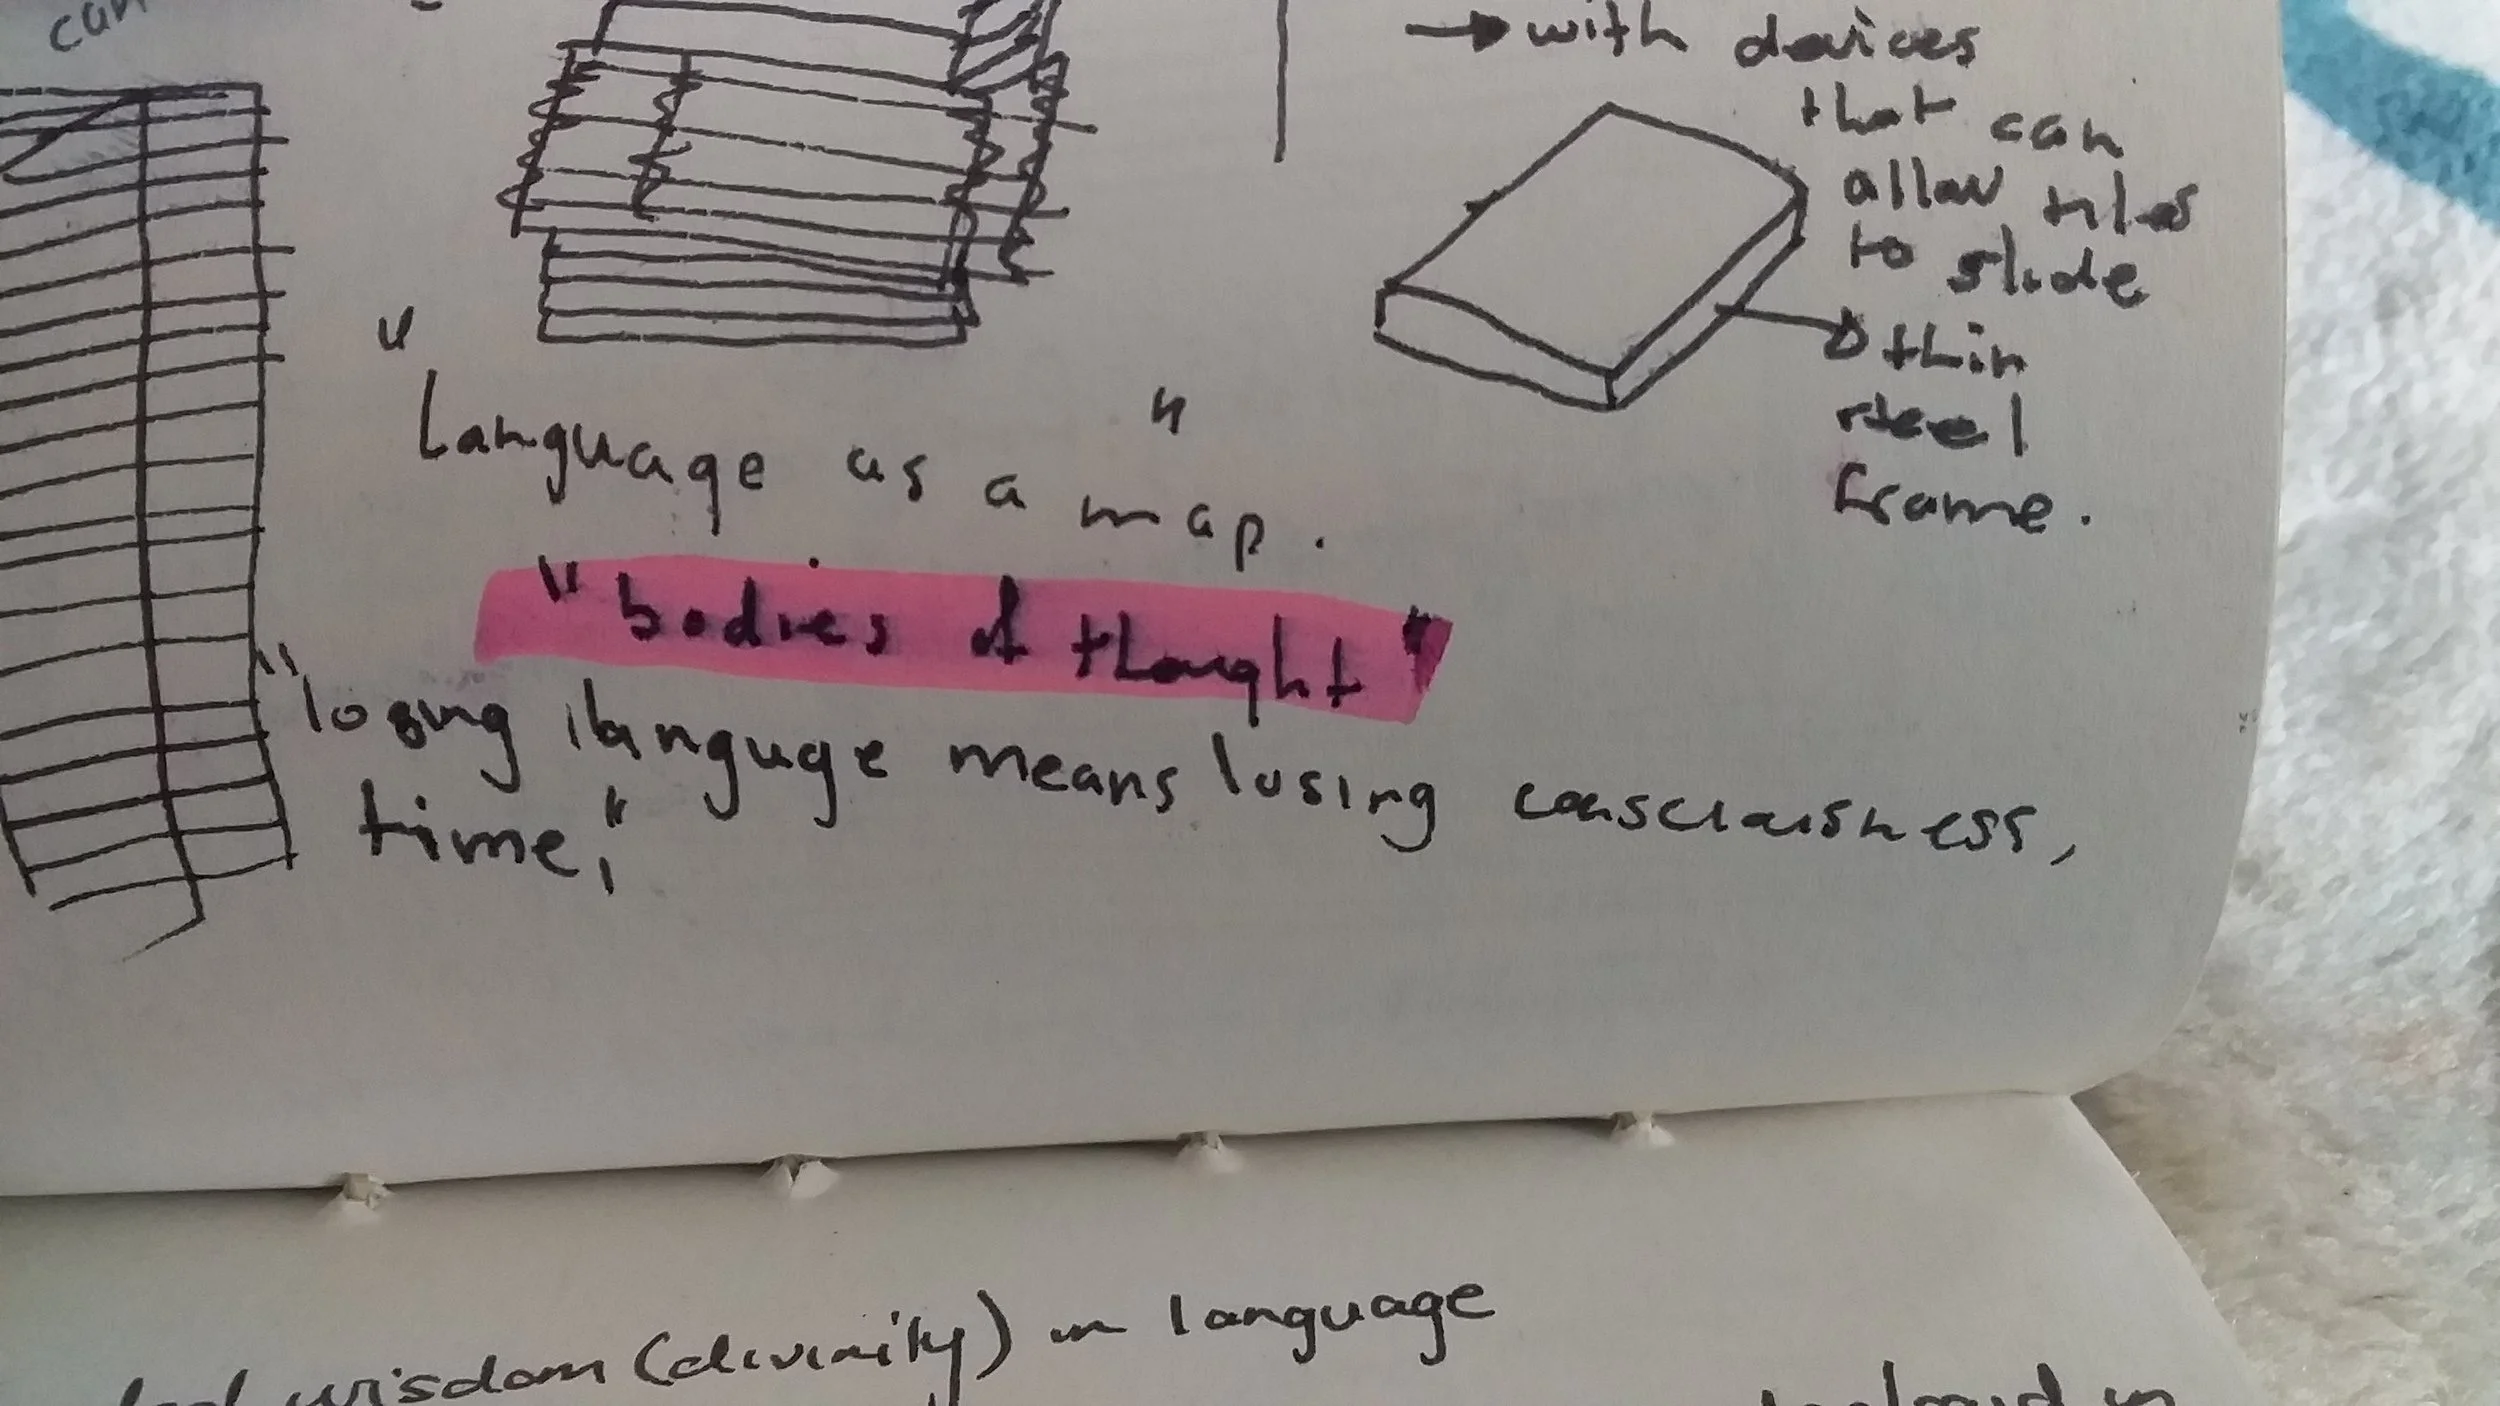 can
→ with devices
that can
allow tiles
to slide
thin
steel
frame.
"Language as a map."
"bodies of thought"
"losing languge means losing consciousness,
time,"
wisdom (divinity) in language
in